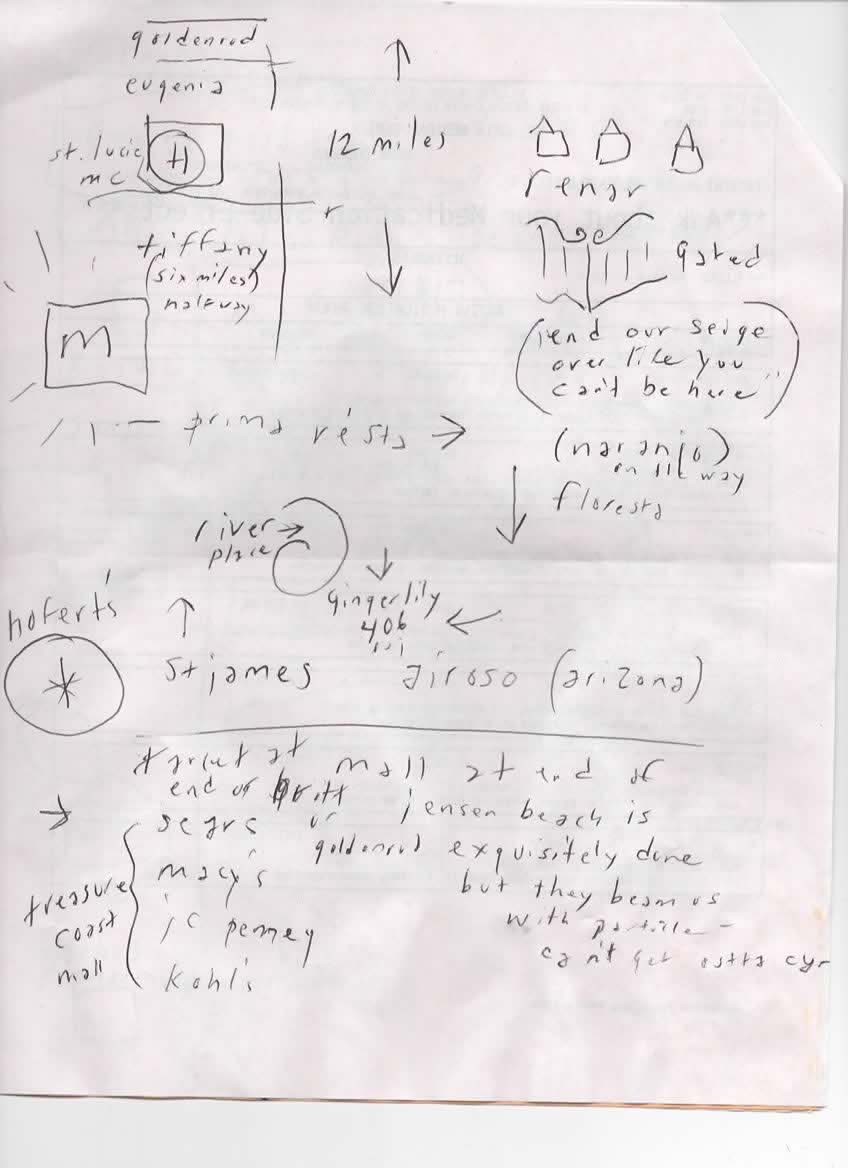 goldenrod
eugenia
st. lucie
mc
H
12 miles
renar
tiffany
(six miles)
halfway
gated
M
our seige
over like you
can't be here"
prima vista
(naranjo)
on the way
floresta
river
place
gingerlily
406
hofert's
st james
airoso (arizona)
target at mall at end of
end of britt jensen beach is
sears or goldenrod exquisitely done
macy's but they beam us
jc penney with particle -
can't get outta
kohl's
treasure
coast
mall